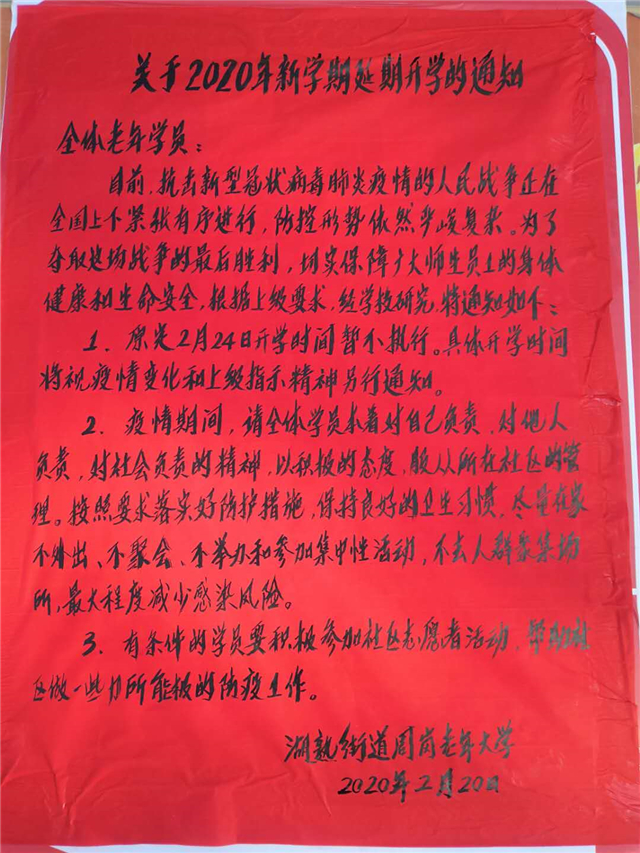 关于2020年新学期延期开学的通知
全体老年学员：
目前,抗击新型冠状病毒肺炎疫情的人民战争正在
全国上下紧张有序进行,防控形势依然严峻复杂。为了
夺取这场战争的最后胜利,切实保障广大师生员工的身体
健康和生命安全,根据上级要求,经学校研究,特通知如下：
1、原定2月24日开学时间暂不执行。具体开学时间
将视疫情变化和上级指示精神另行通知。
2、疫情期间,请全体学员本着对自己负责,对他人
负责,对社会负责的精神,以积极的态度,服从所在社区的管
理。按照要求落实好防护措施,保持良好的卫生习惯,尽量在家
不外出、不聚会、不举办和参加集中性活动,不去人群聚集场
所,最大程度减少感染风险。
3、有条件的学员要积极参加社区志愿者活动,帮助社
区做一些力所能极的防疫工作。
湖熟街道周岗老年大学
2020年2月20日